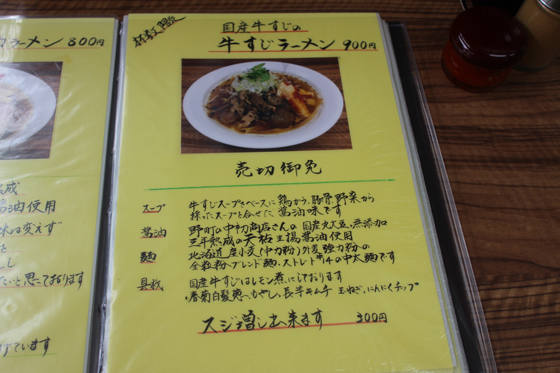 ラーメン 800円
杯数限定
国産牛すじの
牛すじラーメン 900円
売切御免
スープ 牛すじスープをベースに鶏がら、豚骨、野菜から
採ったスープと合せた、醤油味です
醤油 野町の中初商店さんの国産丸大豆、無添加
三年熟成の天祐王揚醤油使用
麺 北海道産小麦(中力粉)外麦強力粉の
全粒粉ブレンド麺、ストレート#14の中太麺です
具材 国産牛すじはレモン煮にしております
春菊白髪葱、もやし、長芋キムチ 玉ねぎ、にんにくチップ
スジ増し出来ます 300円
熟成
醤油使用
味は変えず
を
し
たいと思っております
けています